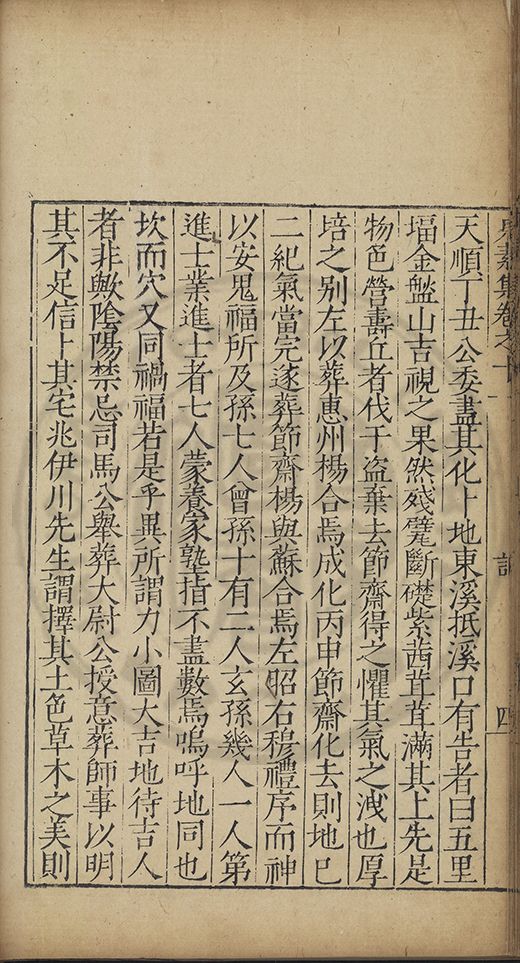 見素集卷之十 記 四
天順丁丑公委盡其化卜地東溪抵溪口有告者曰五里
堛金盤山吉視之果然殘甓斷礎紫茜茸茸滿其上先是
物色營壽丘者伐于盜棄去節齋得之懼其氣之洩也厚
培之别左以葬惠州楊合焉成化丙申節齋化去則地已
二紀氣當完遂葬節齋楊與蘇合焉左昭右穆禮序而神
以安鬼福所及孫七人曾孫十有二人玄孫幾人一人第
進士業進士者七人蒙養家塾指不盡數焉嗚呼地同也
坎而穴又同禍福若是乎異所謂力小圖大吉地待吉人
者非歟陰陽禁忌司馬公舉葬大尉公授意葬師事以明
其不足信卜其宅兆伊川先生謂擇其土色草木之美則